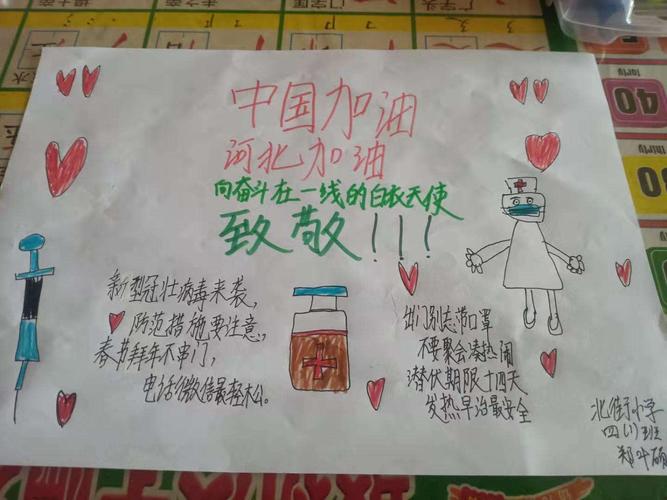 中国加油
河北加油
向奋斗在一线的白衣天使
致敬!!!
新型冠壮病毒来袭,
防范措施要注意,
春节拜年不串门,
电话微信最轻松。
出门别忘带口罩
不要聚会凑热闹
潜伏期限十四天
发热早治最安全
北街小学
四(1)班
广字头
40
thirty